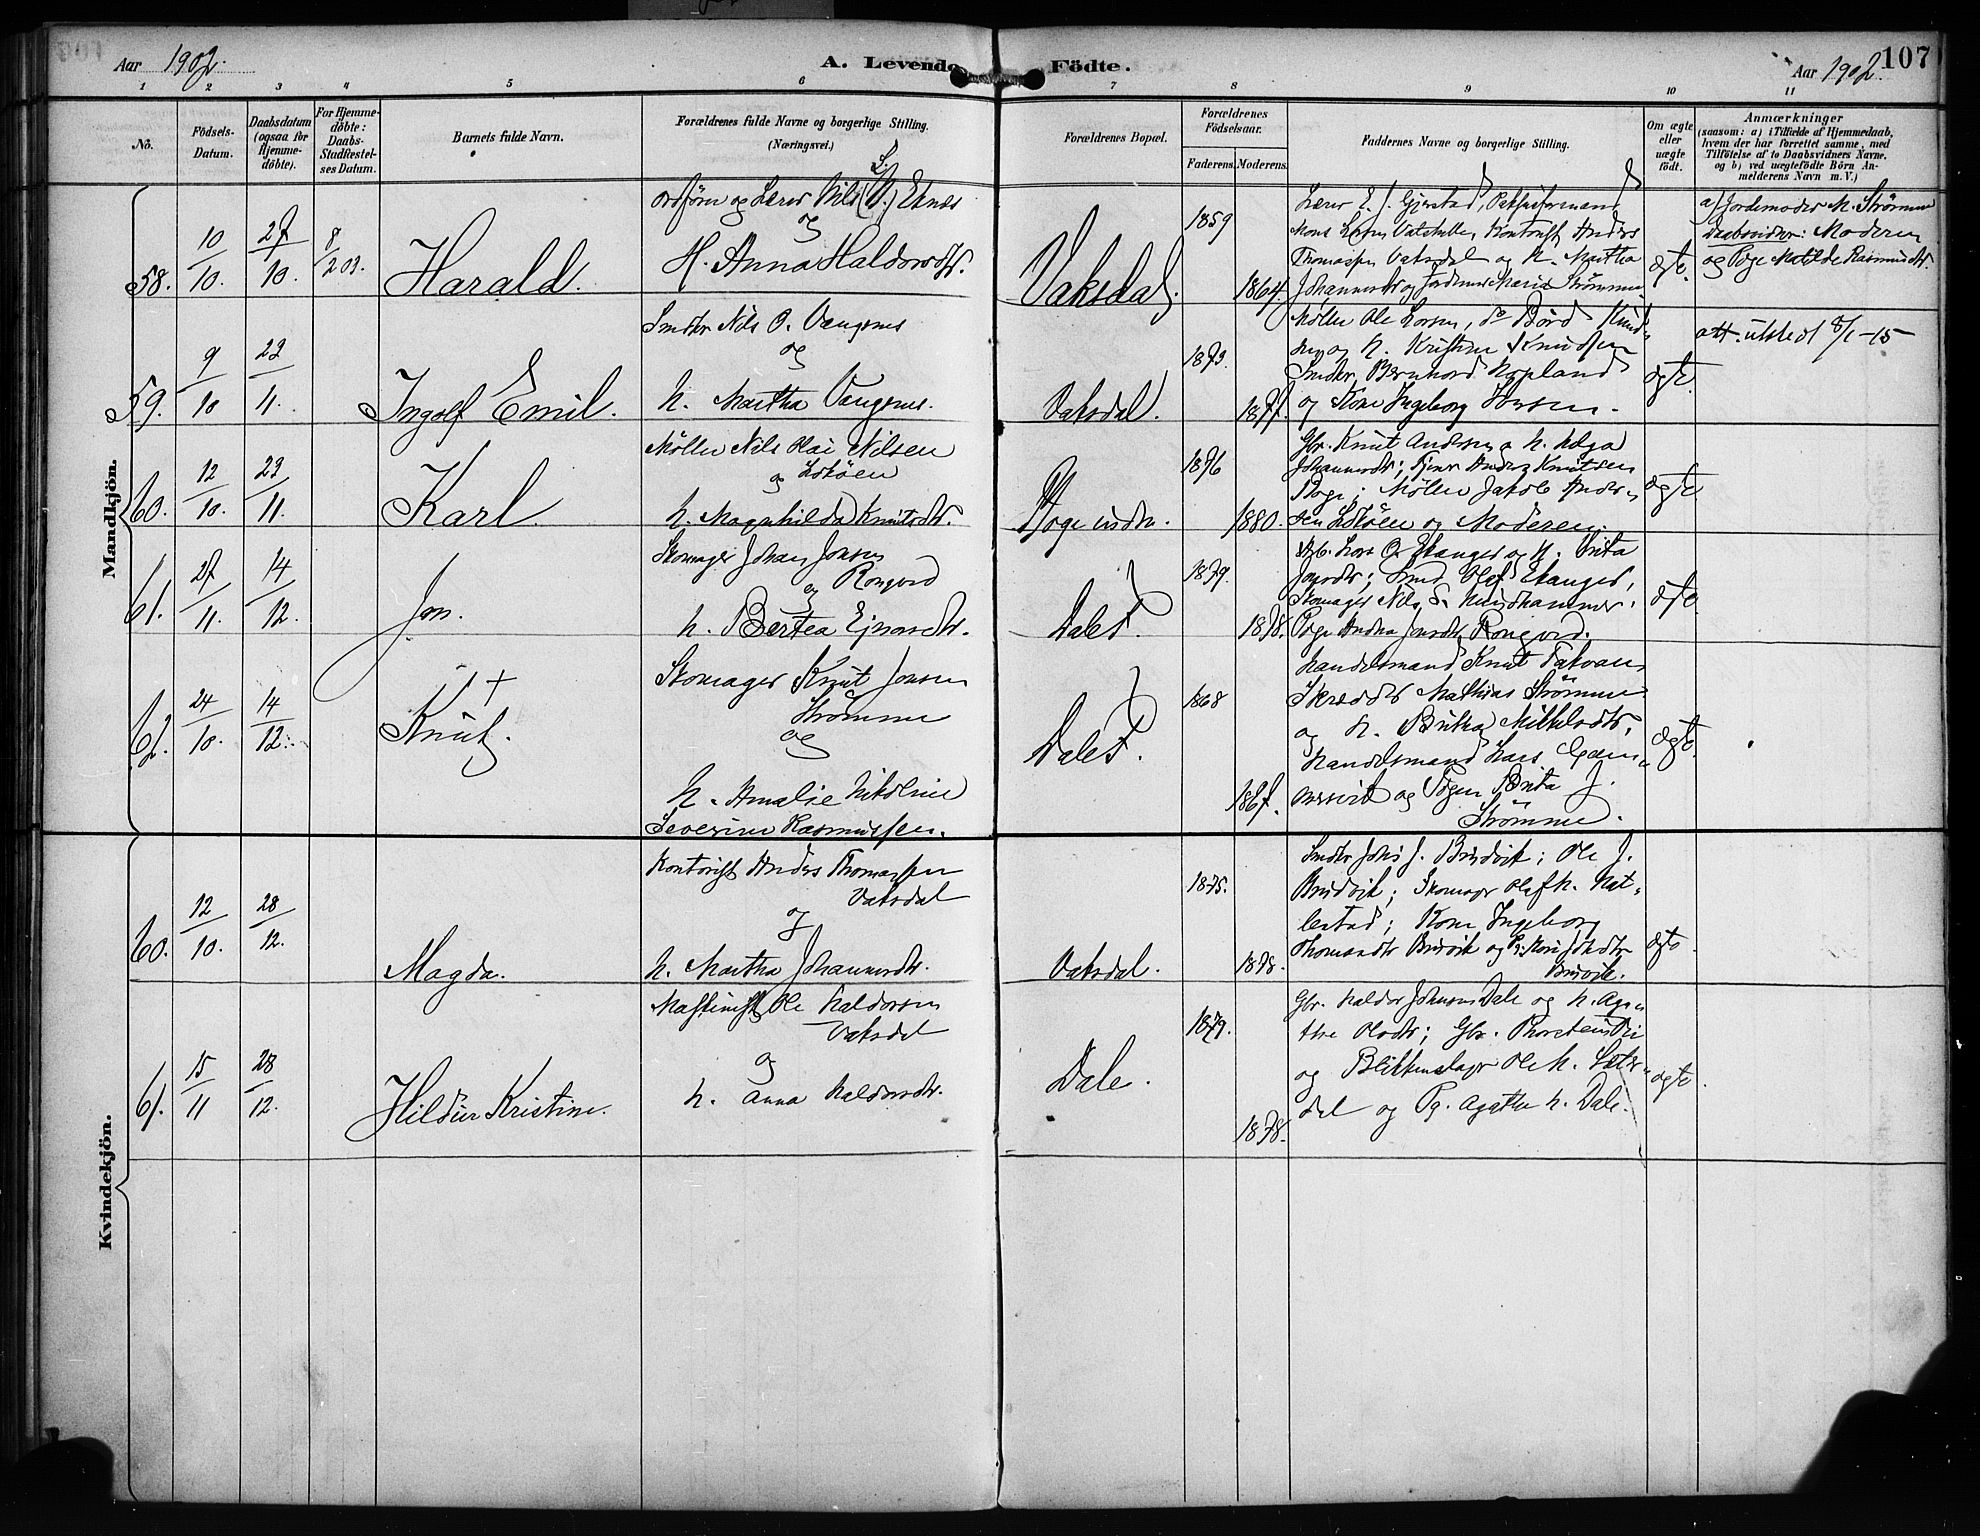 Aar 1902.
A. Levende Födte.
Aar 1902. 107
1 2 3 4 5 6 7 8 9 10 11
No.
Födsels-Datum.
Daabsdatum (ogsaa for Hjemme-döbte).
For Hjemme-döbte: Daabs-Stadfæstel-ses Datum.
Barnets fulde Navn.
Forældrenes fulde Navne og borgerlige Stilling.
(Næringsvei.)
Forældrenes Bopæl.
Forældrenes Födselsaar.
Faderens. Moderens.
Faddernes Navne og borgerlige Stilling.
Om ægte eller uægte födt.
Anmærkninger
(saasom: a) i Tilfælde af Hjemmedaab,
hvem der har forrettet samme, med
Tilföielse af to Daabsvidners Navne,
og b) ved uægtefödte Börn An-
melderens Navn m. V.)
Mandkjön.
58. 10/10 27/10 8/2 03. Harald.
Ordfören og Lærer Nils (N.) Eknes
og
H. Anna Haldorsdtr.
Vaksdal. 1859 1864.
Lærer E. J. Gjerstad,
Mons Larsen Kontorist Anders
Thomassen Vaksdal og K. Martha
Johannesdtr og Jordemor Maria Strömme
ægte.
a) Jordemoder M. Strömme
Daabsvidner: Moderen
og Pige Matilde Rasmusdtr.
59. 9/10 23/11. Ingolf Emil.
Smdbr Nils O. Vangsnes
og
h. Martha Vangsnes.
Vaksdal. 1873. 1877.
Möller Ole Larsen, do Bård Knud-
sen og h. Kristine Knudsen
Smdbr Bernhard Hopland
og Kone Ingeborg
ægte
att. utstedt 8/1-15
60. 12/10. 23/11. Karl.
Möller Nils Olai Nilsen
og
h. Magnhilda Knutsdtr.
1876 1880.
Gbr. Knut Andersen o h. Helga
Johannesdtr; Tjener Anders Knutsen
Möller Jakob Ander-
sen og Moderen.
ægte
61. 27/11. 14/12. Jon.
Skomager Johan Jonsen
og
h. Bertea
Dale F. 1879. 1878.
Gbr. Lars O. Ekanger og h. Brita
Jonsdtr; Smed Olaf Ekanger,
Skomager Nils S.
Pige Andrea Jonsdtr
ægte
62. 24/10. 14/12. Knut. +
Skomager Knut Jonsen
Strömme
og
h. Amalie Nikoline
Severine Rasmussen.
Dale F. 1868 1867.
Handelsmand Knut Takvam,
Skrædder Mathias Strömme
og h. Britha Mikkelsdtr,
Handelsmand Lars
og Pigen Brita J.
Strömme.
ægte
Kvindekjön.
60. 12/10. 28/12. Magda.
Kontorist Anders Thomassen
Vaksdal
og
h. Martha Johannesdtr.
Vaksdal. 1875. 1878.
Smdbr Johs J. Brudvik; Ole J.
Brudvik; Skomagr Olaf K. Nat-
lestad; Kone Ingeborg
Thomasdtr Brudvik og
Brudvik.
ægte
61. 15/11 28/12. Hildur Kristine.
Maskinist Ole Haldorsen
Vaksdal
og
h. Anna Haldorsdtr.
Dale. 1879. 1878.
Gbr. Haldor Johnsen Dale og h. Aga-
the Olsdtr; Gbr. Thorstein
og Blikkenslagr Ole H. Sæter-
dal og Pg. Agatha H. Dale.
ægte